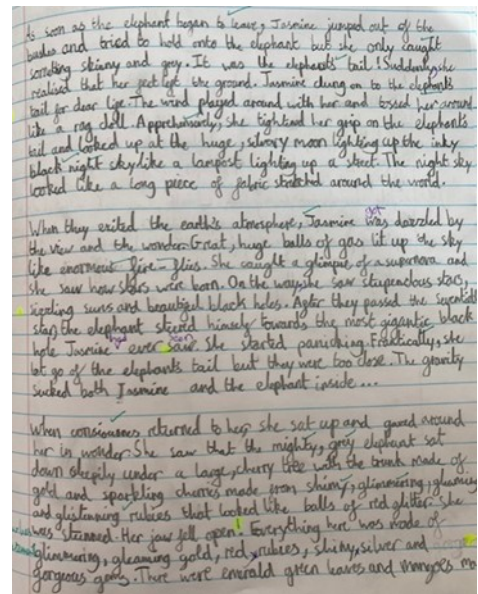 As soon as the elephant began to leave, Jasmine jumped out of the
bushes and tried to hold onto the elephant but she only caught
something skinny and grey. It was the elephants' tail! Suddenly, she
realised that her feet left the ground. Jasmine clung on to the elephants
tail for dear life. The wind played around with her and tossed her around
like a rag doll. Apprehensively, she tightend her grip on the elephants
tail and looked up at the huge, silvery moon lighting up the inky
black night sky like a lampost lighting up a street. The night sky
looked like a long piece of fabric stretched around the world.
When they exited the earth's atmosphere, Jasmine was dazzled by
the view and the wonder. Great, huge balls of gas lit up the sky
like enormous fire-flies. She caught a glimpse of a supernova and
she saw how stars were born. On the way, she saw stupendous stars,
sizzling suns and beautiful black holes. After they passed the
star, the elephant steered himself towards the most gigantic black
hole Jasmine had ever saw seen. She started panicking. Frantically, she
let go of the elephants tail but they were too close. The gravity
sucked both Jasmine and the elephant inside...
When consiousness returned to her, she sat up and gazed around
her in wonder. She saw that the mighty, grey elephant sat
down sleepily under a large, cherry tree with the trunk made of
gold and sparkling cherries made from shiny, glimmering, gleaming
and glistening rubies that looked like balls of red glitter. She
was stunned. Her jaw fell open! Everything here was made of
glimmering, gleaming gold, red rubies, shiny, silver and
gorgeous gems. There were emerald green leaves and mangoes